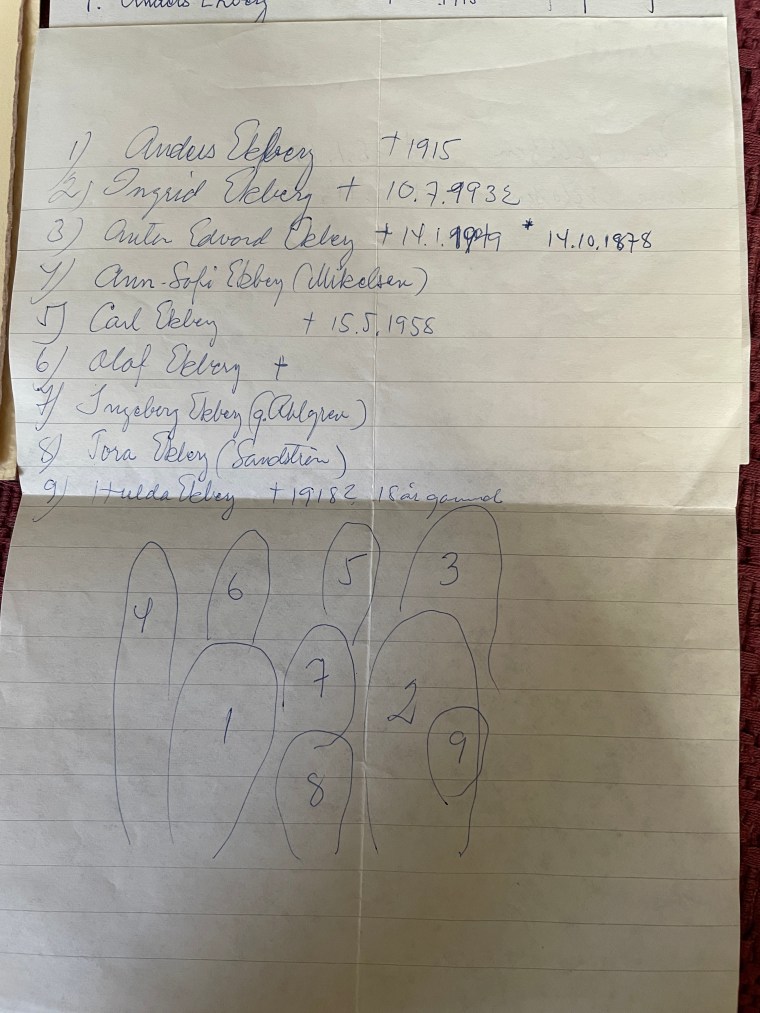 1. Anders Ekberg + 1915
1) Anders Ekberg + 1915
2) Ingrid Ekberg + 10.7.
3) Anton Edvard Ekberg + 14.1.1949 * 14.10.1878
4) Ann-Sofi Ekberg (Mikelsen)
5) Carl Ekberg + 15.5.1958
6) Olof Ekberg +
7) Ingeborg Ekberg (g. Ahlgren)
8) Tora Ekberg (Sandström)
9) Hulda Ekberg + 1918? 15 år gammal
4 6 5 3
1 7 2
8 9